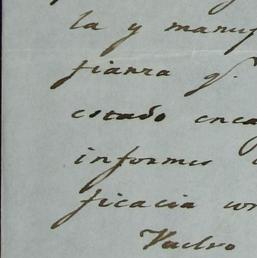 la y manif
fianza q.
estado enca
informes
ficacia con
Vuelvo